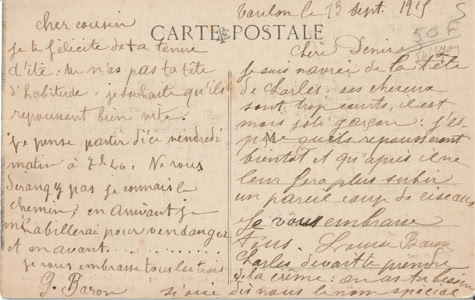 CARTE POSTALE
cher cousin
je te félicite de ta tenue
d'été. tu n'as pas ta tête
d'habitude, je souhaite qu'ils
repoussent bien vite.
je pense partir d'ici vendredi
matin à 7h40. Ne vous
dérangez pas je connais le
chemin, en arrivant je
m'habillerai pour vendanger
et en avant....
je vous embrasse tous les trois
G. Baron
Toulon le 13 Sept. 1915
50F
Chère Denise
je suis navrée de la tête
de Charles: ses cheveux
sont trop courts, il est
moins joli garçon: j'es
père qu'ils repousseront
bientôt et qu'après il ne
leur fera plus subir
un pareil coup de ciseaux
Je vous embrasse
Tous. Louise Baron
Charles devait prendre
la crème:
dis nous le nom spécial